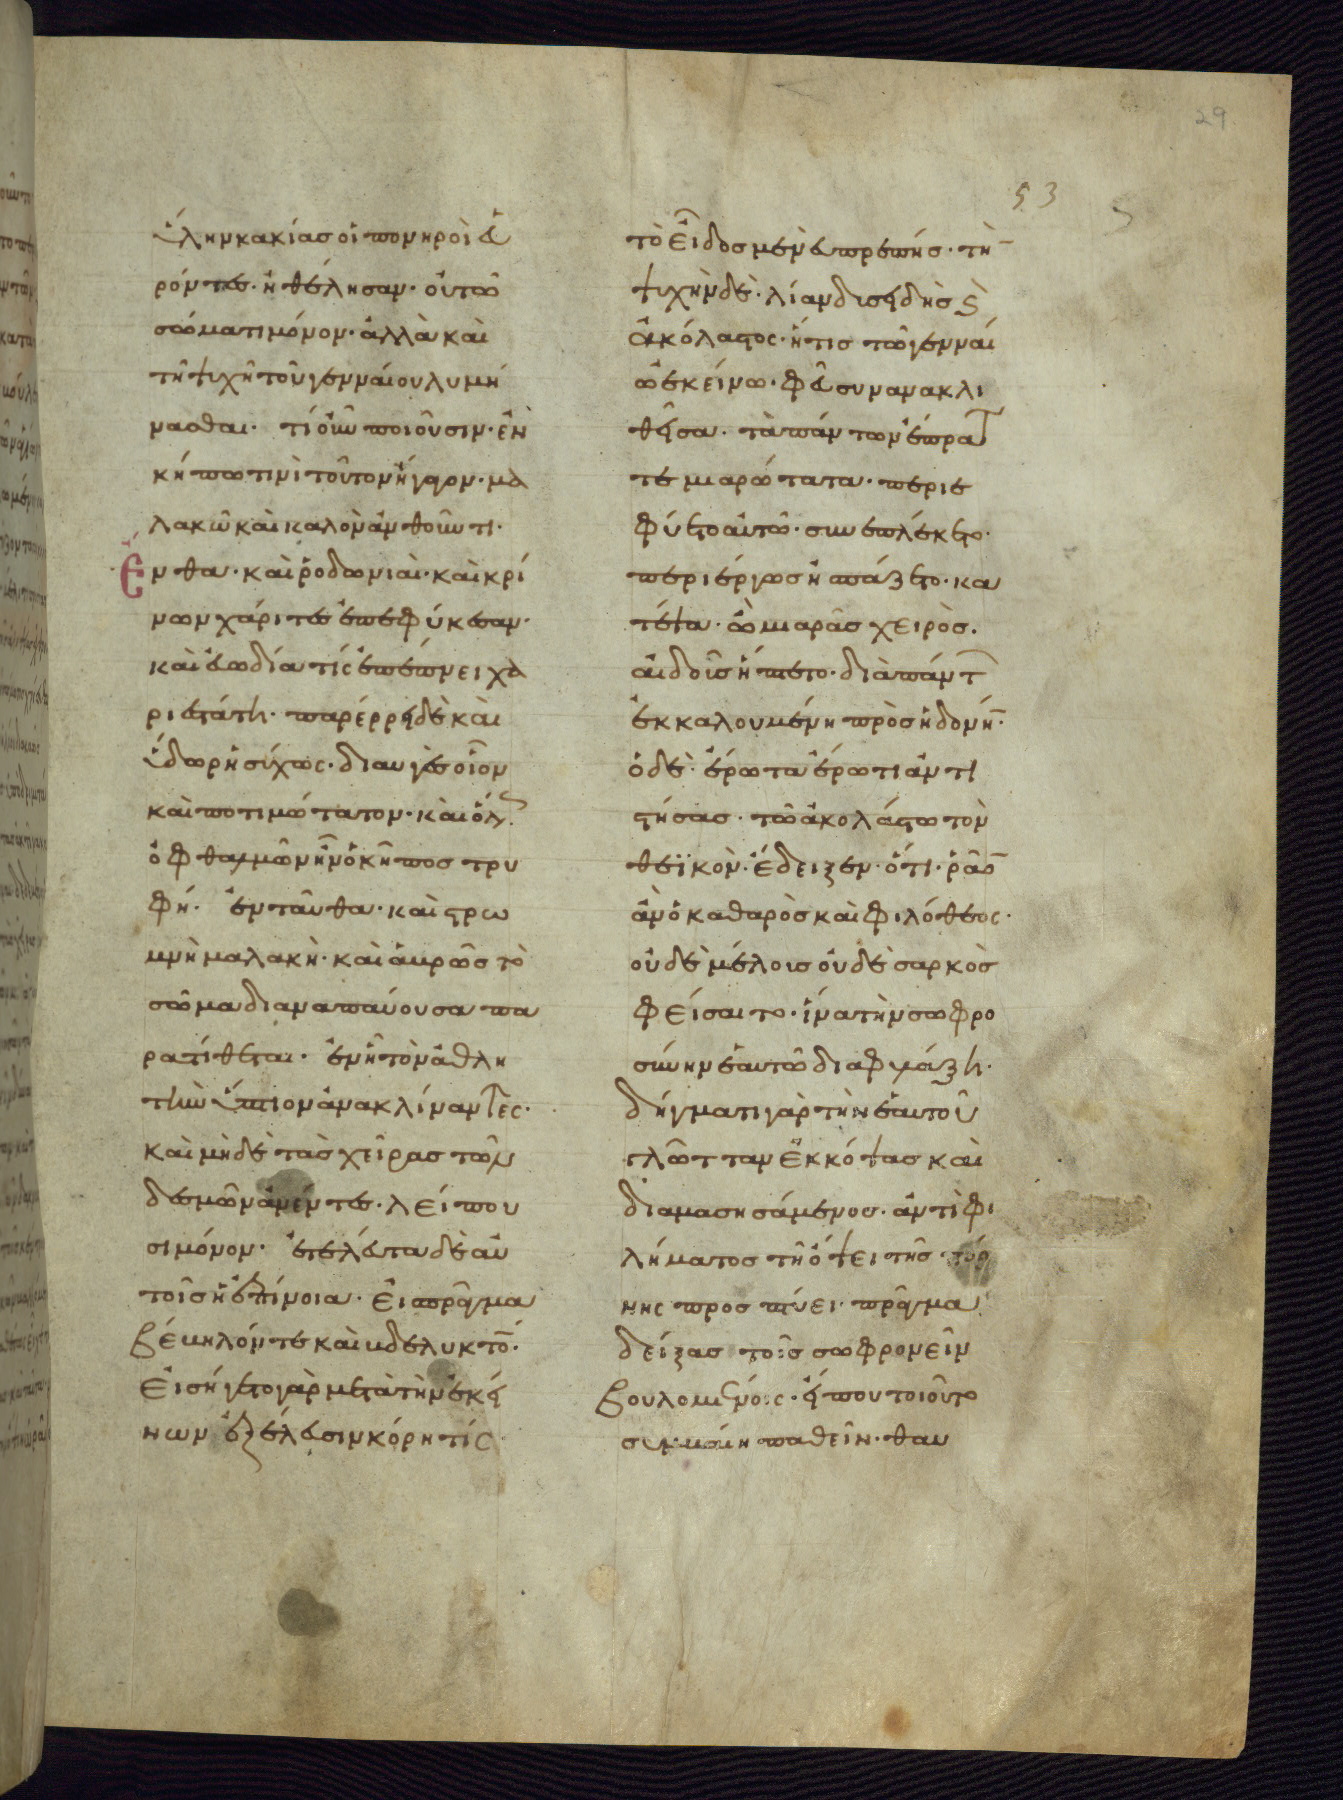 29
53
ὕλην κακίας οἱ πονηροὶ εὑ
ρόντες. ἠθέλησαν. οὐ τῶ
σώματι μόνον. ἀλλὰ καὶ
τῆ ψυχῆ τοῦ γενναίου λυμή
νασθαι. τί οὖν ποιοῦσιν. ἐν
κήπω τινὶ τοῦτον ἦγον. μα
λακῶ καὶ καλὸν ἀνθοῦντι.
Ἔνθα. καὶ ῥοδωνιαὶ. καὶ κρί
νων χάριτες ἐπεφύκεσαν.
καὶ εὐωδία τίς ἐπέπνει χα
ριεστάτη. παρέρρει δὲ καὶ
ὕδωρ ἡσύχως. διαυγὲς οἷον
καὶ ποτιμώτατον. καὶ ὅλ
ὀφθαλμῶν ἦν ὁ κῆπος τρυ
φή. ἐνταῦθα. καὶ στρω
μνὴ μαλακὴ. καὶ ἁβρῶς τὸ
σῶμα διαναπαύουσα πα
ρατίθεται. ἐν ᾗ τὸν ἀθλη
τὴν ὕπτιον ἀνακλίναντες.
καὶ μηδὲ τὰς χεῖρας τῶν
δεσμῶν ἀνέντες. λείπου
σι μόνον. ἐτελεύτα δὲ αὐ
τοῖς ἡ ἐπίνοια. εἰς πρᾶγμα
βέβηλόν τε καὶ βδελυκτὸν.
Εἰσήγετο γὰρ μετὰ τὴν ἐκεί
νων ἐξέλευσιν κόρη τίς
τὸ εἶδος μὲν εὐπρεπής. τὴν
ψυχὴν δὲ. λίαν δυσειδὴς καὶ
ἀκόλαστος. ἥτις τῶ γενναί
ω ἐκείνω. φεῦ συνανακλι
θεῖσα. τὰ πάντων ἔπρατ
τε μιαρώτατα. περιε
φύετο αὐτῶ. συνεπλέκετο.
περιέργως ἠσπάζετο. κα
τέψα. ὢ μιαρᾶς χειρὸς.
αἰδοῖς ἥπτετο. διὰ πάντ
ἐκκαλουμένη πρὸς ἡδονήν.
ὁ δὲ. ἔρωτα ἔρωτι ἀντι
στήσας. τῶ ἀκολάστω τὸν
θεϊκὸν. ἔδειξεν. ὅτι. ῥᾶον
ἂν ὁ καθαρὸς καὶ φιλόθεος.
οὐδὲ μέλους οὐδὲ σαρκὸς
φείσαιτο. ἵνα τὴν σωφρο
σύνην ἑαυτῶ διαφυλάξη.
δήγματι γὰρ τὴν ἑαυτοῦ
γλῶτταν ἐκκόψας καὶ
διαμασησάμενος. ἀντὶ φι
λήματος τῆ ὄψει τῆς πόρ
νης προσπτύει. πρᾶγμα
δείξας τοῖς σωφρονεῖν
βουλομένοις. εἴπου τοιοῦτο
συμβαίη παθεῖν. θαυ